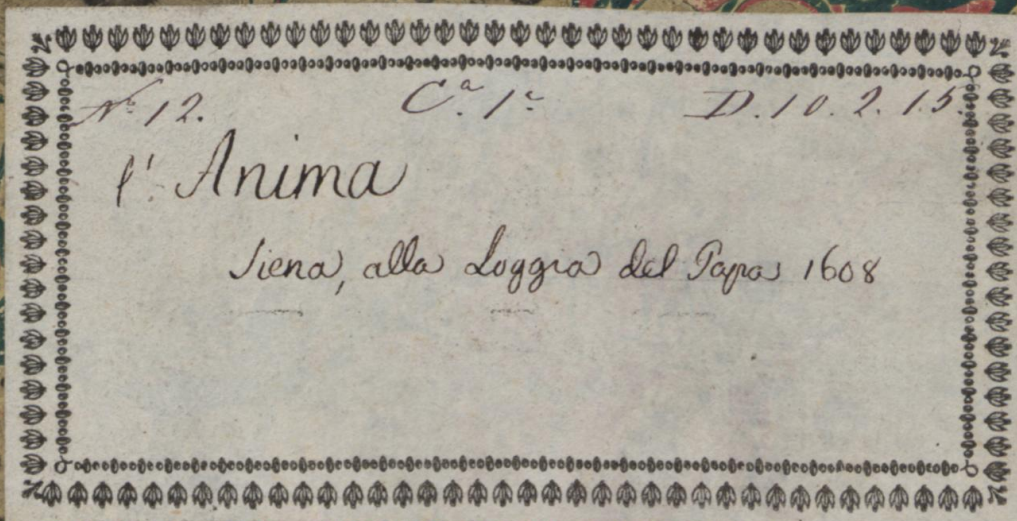 N.º 12. C.ª 1.ª D.10.2.15.
l' Anima
Siena, alla Loggia del Papa 1608